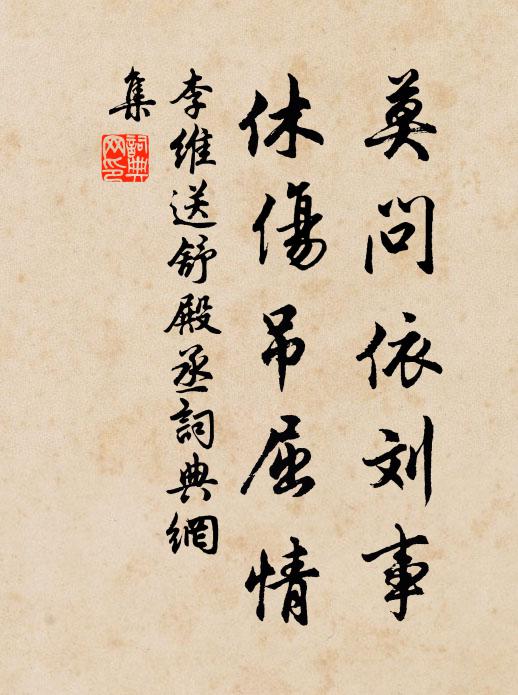 莫问依刘事
休傷吊屈情
李維送舒殿丞詞典網
集
詞典
网印